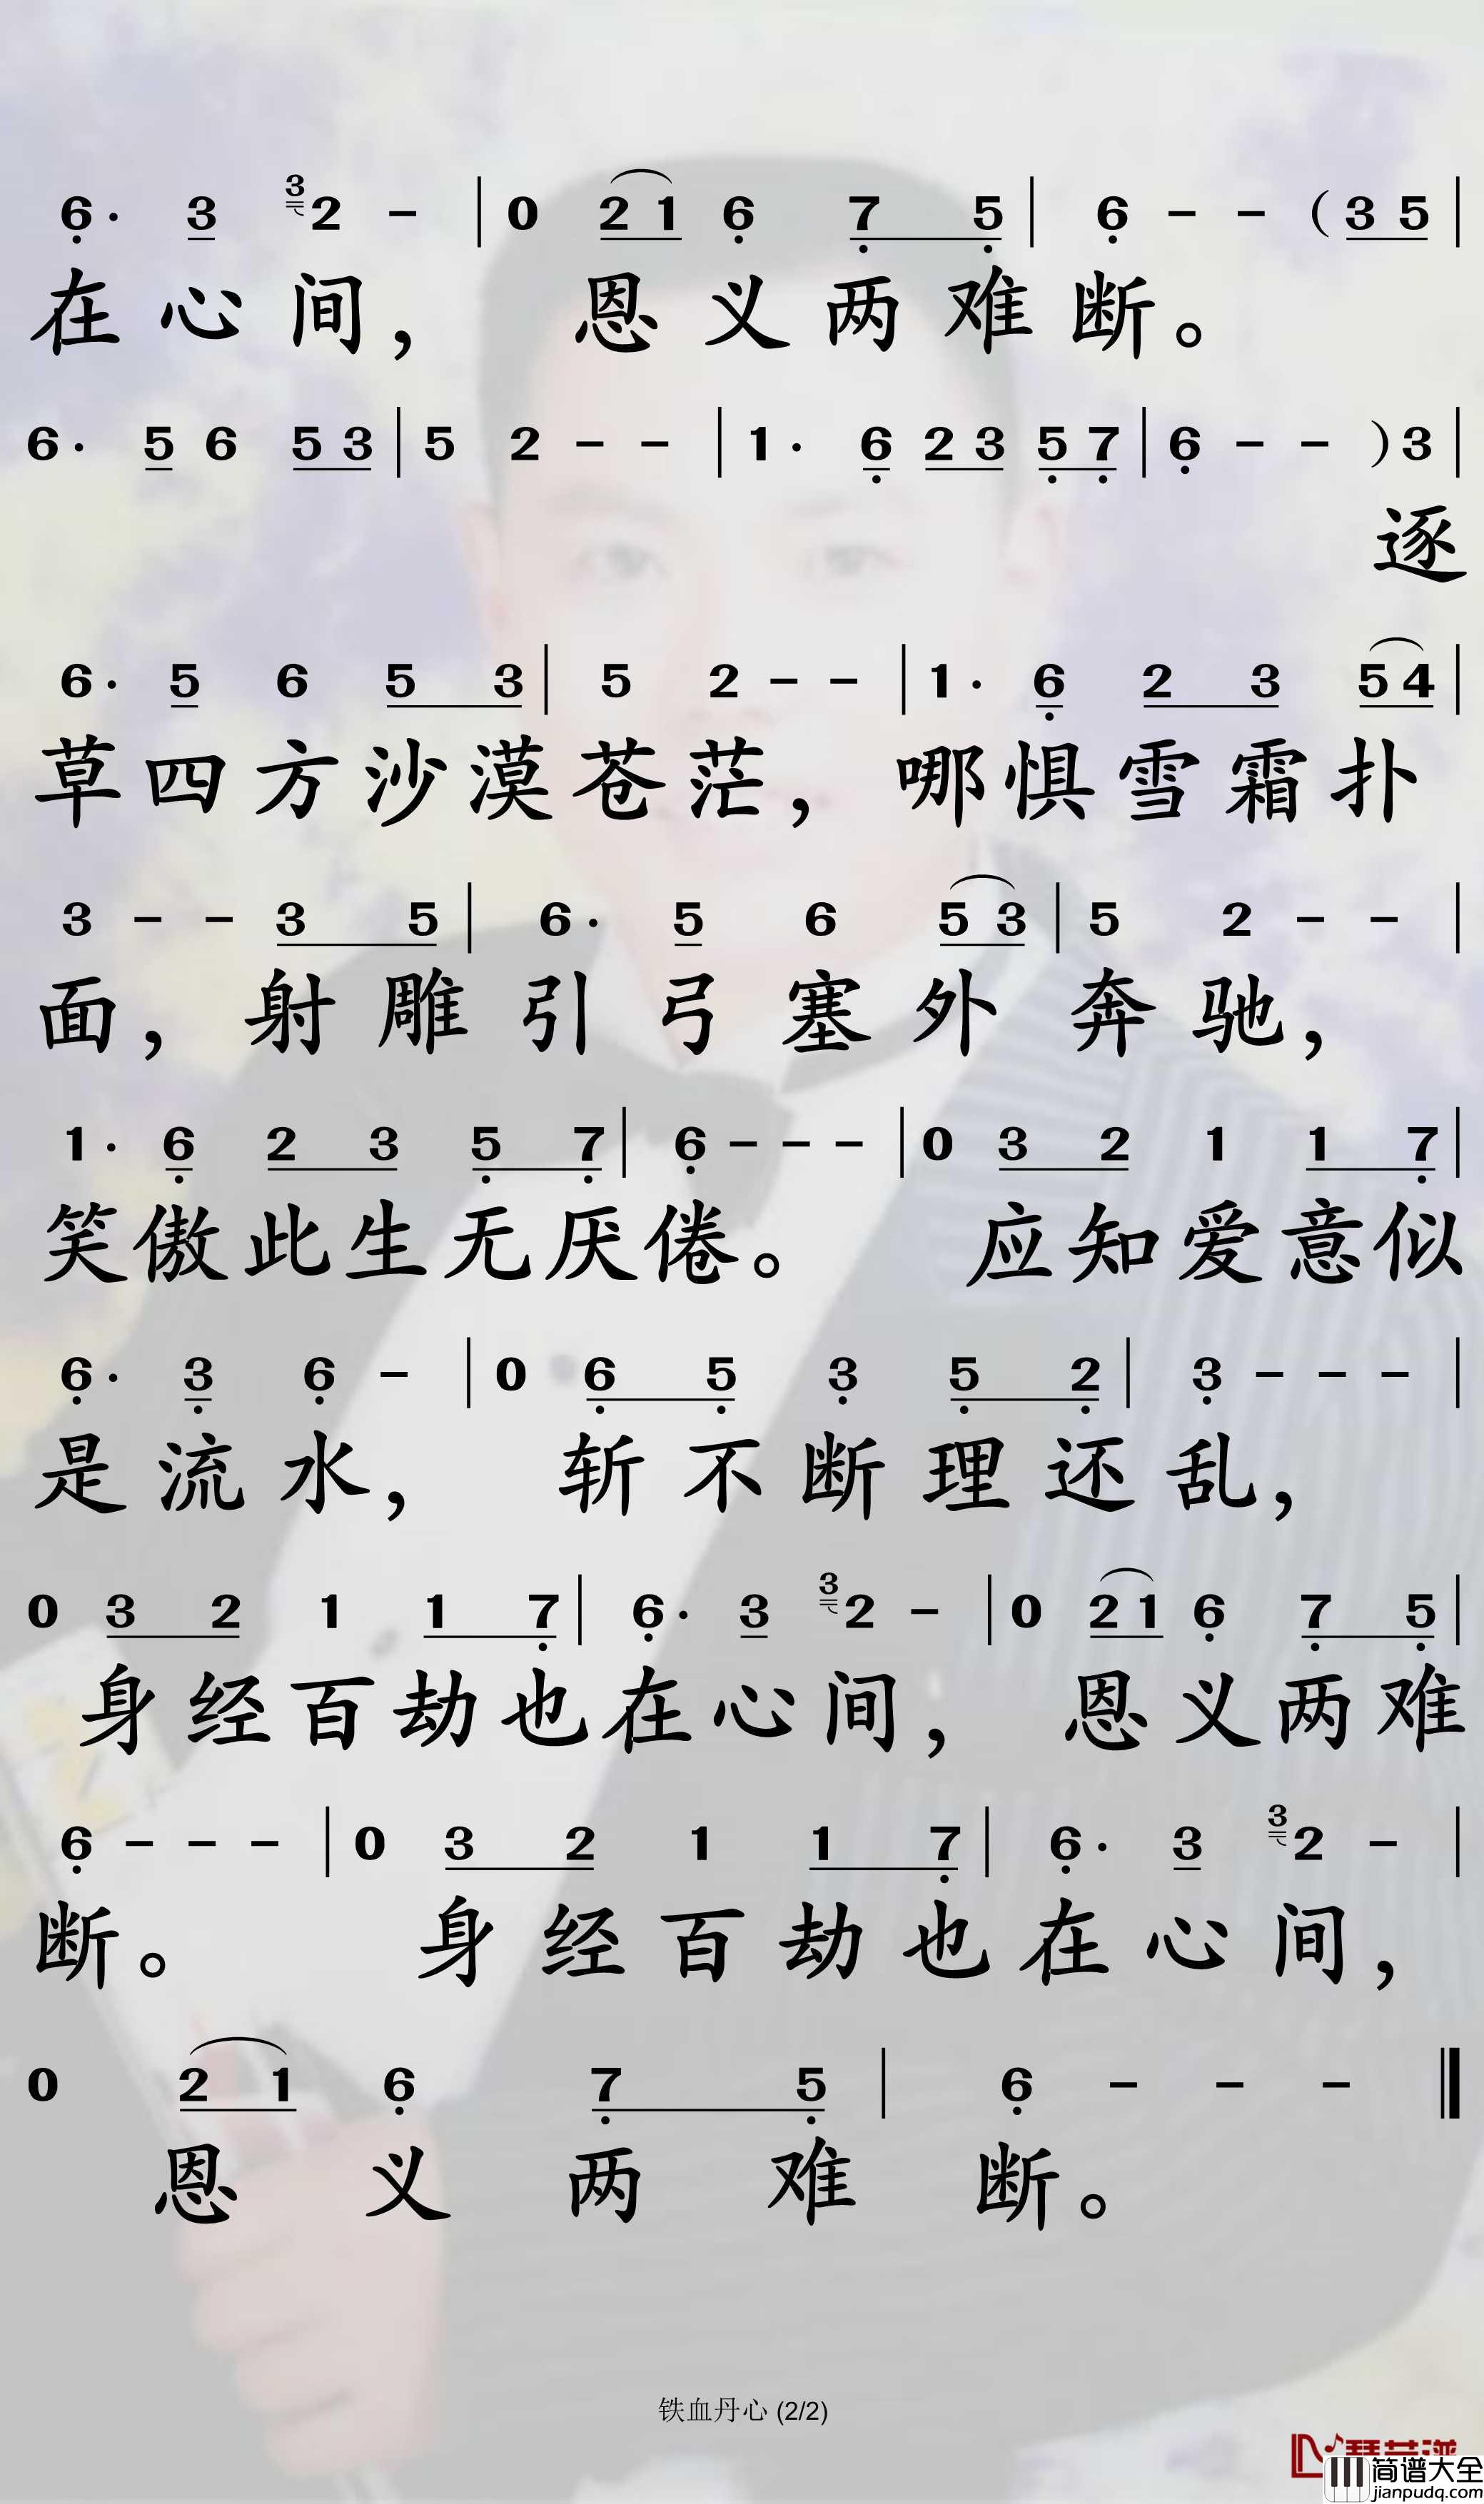 6· 3 3 2 - | 0 2 1 6 7 5 | 6 - - ( 3 5 |
在心间， 恩义两难断。
6· 5 6 5 3 | 5 2 - - | 1· 6 2 3 5 7 | 6 - - ) 3 |
逐
6· 5 6 5 3 | 5 2 - - | 1· 6 2 3 5 4 |
草四方沙漠苍茫，哪惧雪霜扑
3 - - 3 5 | 6· 5 6 5 3 | 5 2 - - |
面，射雕引弓塞外奔驰，
1· 6 2 3 5 7 | 6 - - - | 0 3 2 1 1 7 |
笑傲此生无厌倦。 应知爱意似
6· 3 6 - | 0 6 5 3 5 2 | 3 - - - |
是流水， 斩不断理还乱，
0 3 2 1 1 7 | 6· 3 3 2 - | 0 2 1 6 7 5 |
身经百劫也在心间， 恩义两难
6 - - - | 0 3 2 1 1 7 | 6· 3 3 2 - |
断。 身经百劫也在心间，
0 2 1 6 7 5 | 6 - - - ‖
恩义两难断。
铁血丹心 (2/2)
简谱大全
jianpudq.com